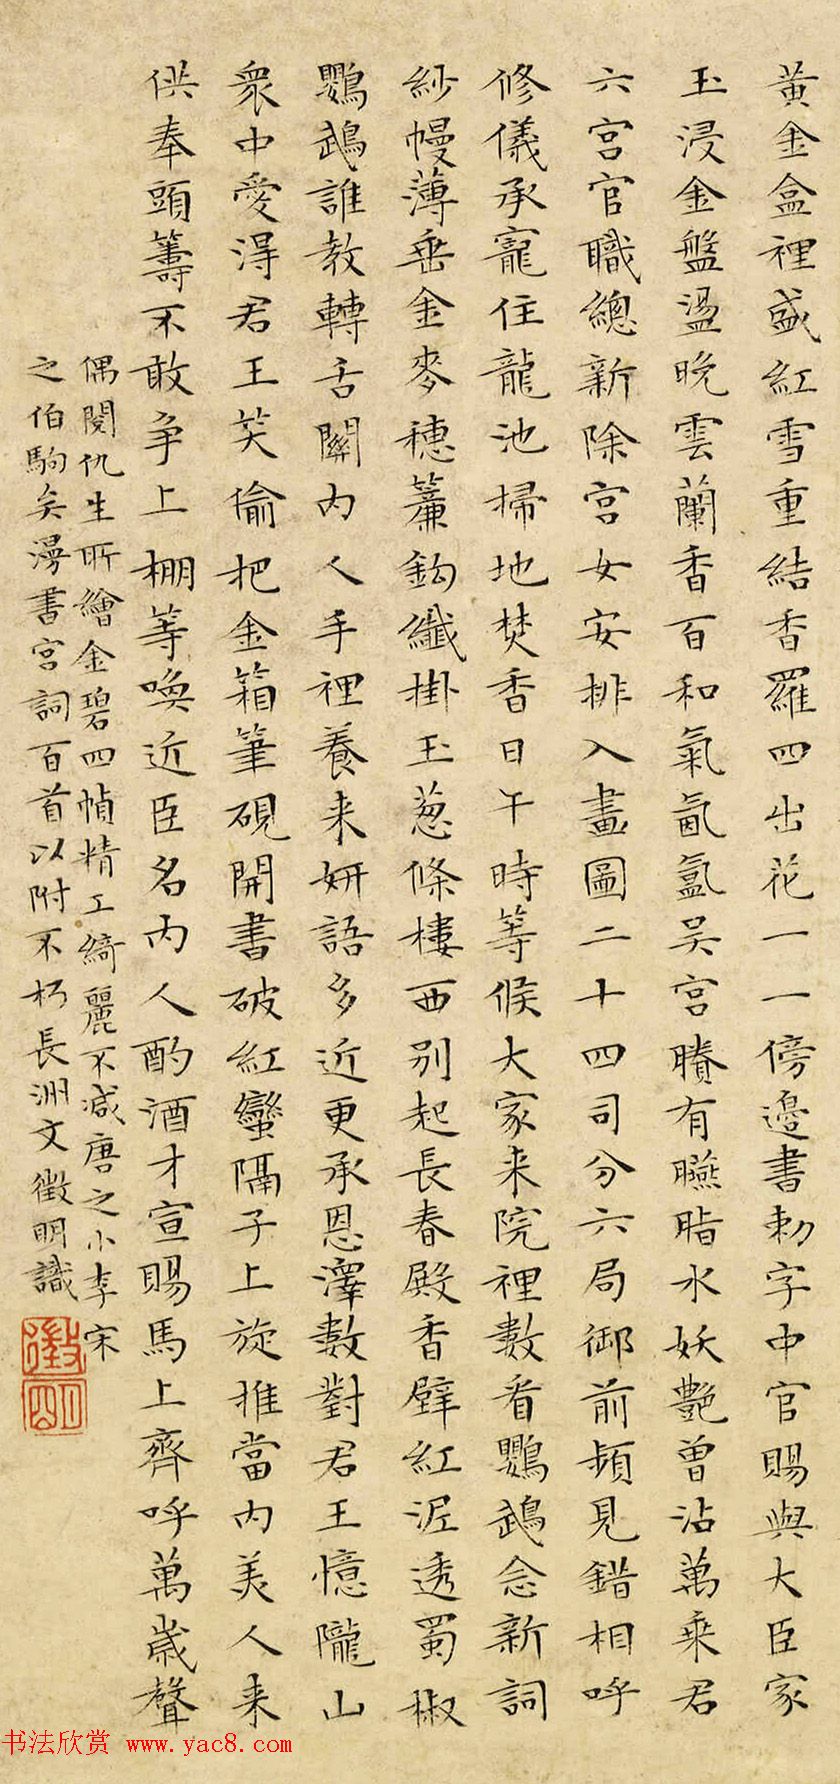 黃金盒裡盛紅雪重結香羅四出花一一傍邊書勅字中官賜與大臣家
玉浸金盤盪晚雲蘭香百和氣氤氳吴宮賸有臙脂水妖艷曾沾萬乘君
六宮官職總新除宮女安排入畫圖二十四司分六局御前頻見錯相呼
修儀承寵住龍池掃地焚香日午時等候大家来院裡數看鸚鵡念新詞
紗幔薄垂金麥穗簾鈎纖掛玉葱條樓西别起長春殿香壁紅泥透蜀椒
鸚鵡誰教轉舌關内人手裡養来妍語多近更承恩澤數對君王憶隴山
衆中愛得君王笑偷把金箱筆硯開書破紅蠻隔子上旋推當内美人来
供奉頭籌不敢争上棚等喚近臣名内人酌酒才宣賜馬上齊呼萬歲聲
偶閱仇生所繪金碧四幀精工綺麗不減唐之小李宋
之伯駒矣漫書宮詞百首以附不朽長洲文徵明識
徵明
书法欣赏 www.yac8.com